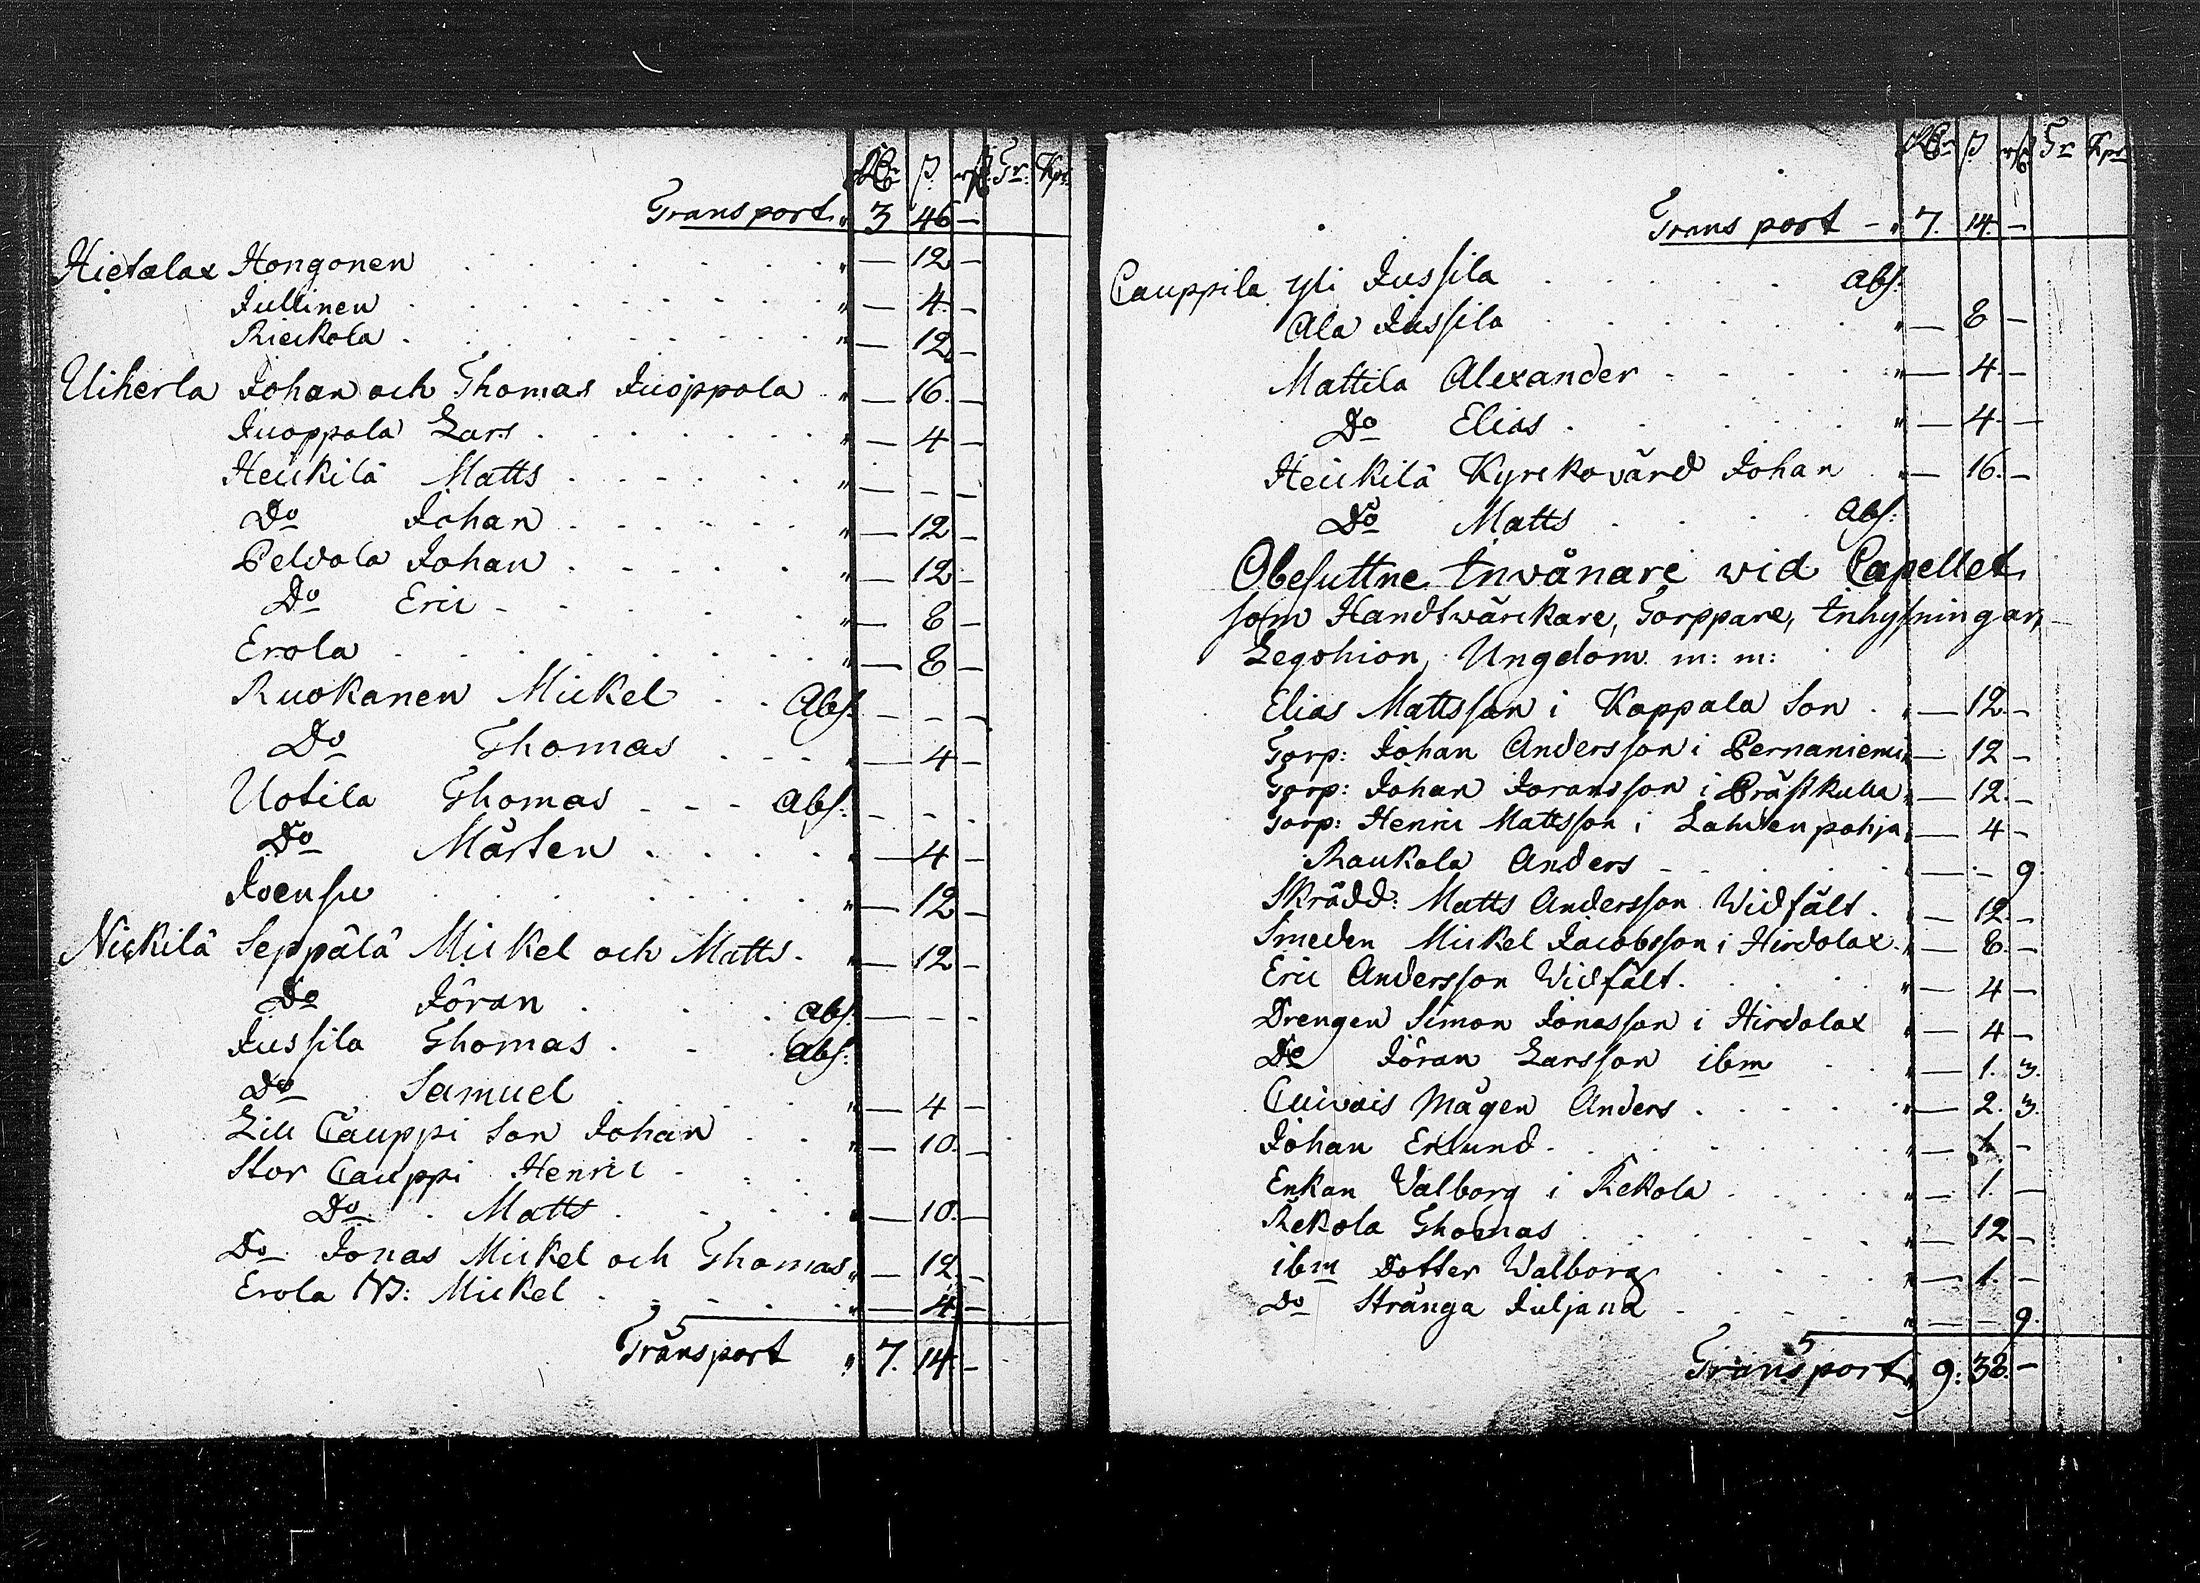 Rdr ß rst Tr: Kpr
Transport " 3 46 —
Hietalax Hongonen " — 12 —
Jullinen " — 4 —
Rieckola " — 12 —
Uiherla Johan och Thomas Juoppola " — 16 —
Juoppola Lars " — 4 —
Heickilä Matts " — — —
Do Johan " — 12 —
Peldola Johan " — 12 —
Do Eric " — 8 —
Erola " — 8 —
Ruokanen Mickel Abs: — — —
Do Thomas " — 4 —
Uotila Thomas Abs: — — —
Do Mårten " — 4 —
Joensu " — 12 —
Nickilä Seppälä Mickel och Matts " — 12 —
Do Jöran Abs: — — —
Jussila Thomas Abs:
Do Samuel " — 4 —
Lill Cauppi Son Johan " — 10. —
Stor Cauppi Henric
Do Matts " — 10. —
Do Jonas Mickel och Thomas " — 12 —
Erola Mickel " — 4 —
Transport " 7. 14 —
Rdr ß rst Tr Kpr
Transport " 7. 14. —
Cauppila yli Jussila Abs:
Ala Jussila " — 8 —
Mattila Alexander " — 4 —
Do Elias " — 4 —
Heickilä Kyrckovärd Johan " — 16. —
Do Matts Abs:
Obesuttne Invånare wid Capellet,
som Handtwärckare, Torppare, Inhysningar,
Legohion, Ungdom m: m:
Elias Mattsson i Kappala Son " — 12. —
Torp: Johan Andersson i Pernaniemi " — 12 —
Torp: Johan Joransson i Prästkulla " — 12. —
Torp: Henric Mattsson i Lahdenpohja " — 4 —
Raukola Anders — — 9.
Skrädd: Matts Andersson Widfält " — 12. —
Smeden Mickel Jacobsson i Hirdolax " — 8. —
Eric Andersson Widfält " — 4 —
Drengen Simon Jonasson i Hirdolax " — 4 —
Do Jöran Larsson ibm " — 1. 3.
Cuivais Mågen Anders " — 2. 3.
Johan Erlund " — 1. —
Enkan Valborg i Rekola " — 1. —
Rekola Thomas " — 12 —
ibm Dotter Walborg " — 1. —
Do Stränga Juljana " — — 9.
Transport " 9: 38. —